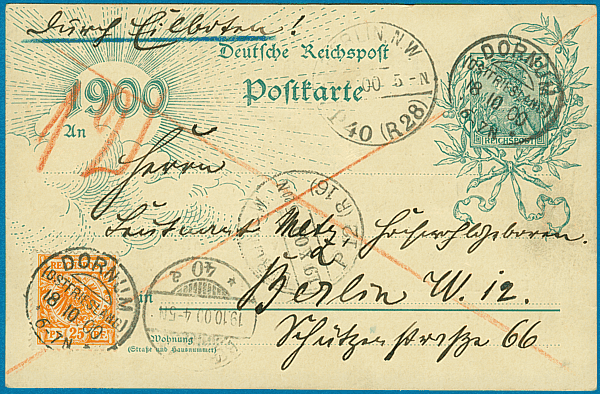 Durch Eilboten!
Deutsche Reichspost
Postkarte
1900
An
Herrn
Leutnant Metz Hochwohlgeboren.
in Berlin W. 12.
Schützenstraße 66
Wohnung
(Straße und Hausnummer)
DORNUM
(OSTFRIESLAND)
18.10.00
6-7N
REICHSPOST
DORNUM
(OSTFRIESLAND)
18.10.00
6-7N
25
BERLIN, N.W.
00 5-N
P40 (R28)
P 2 (R16)
* 40 a
19.10.00.4-5N